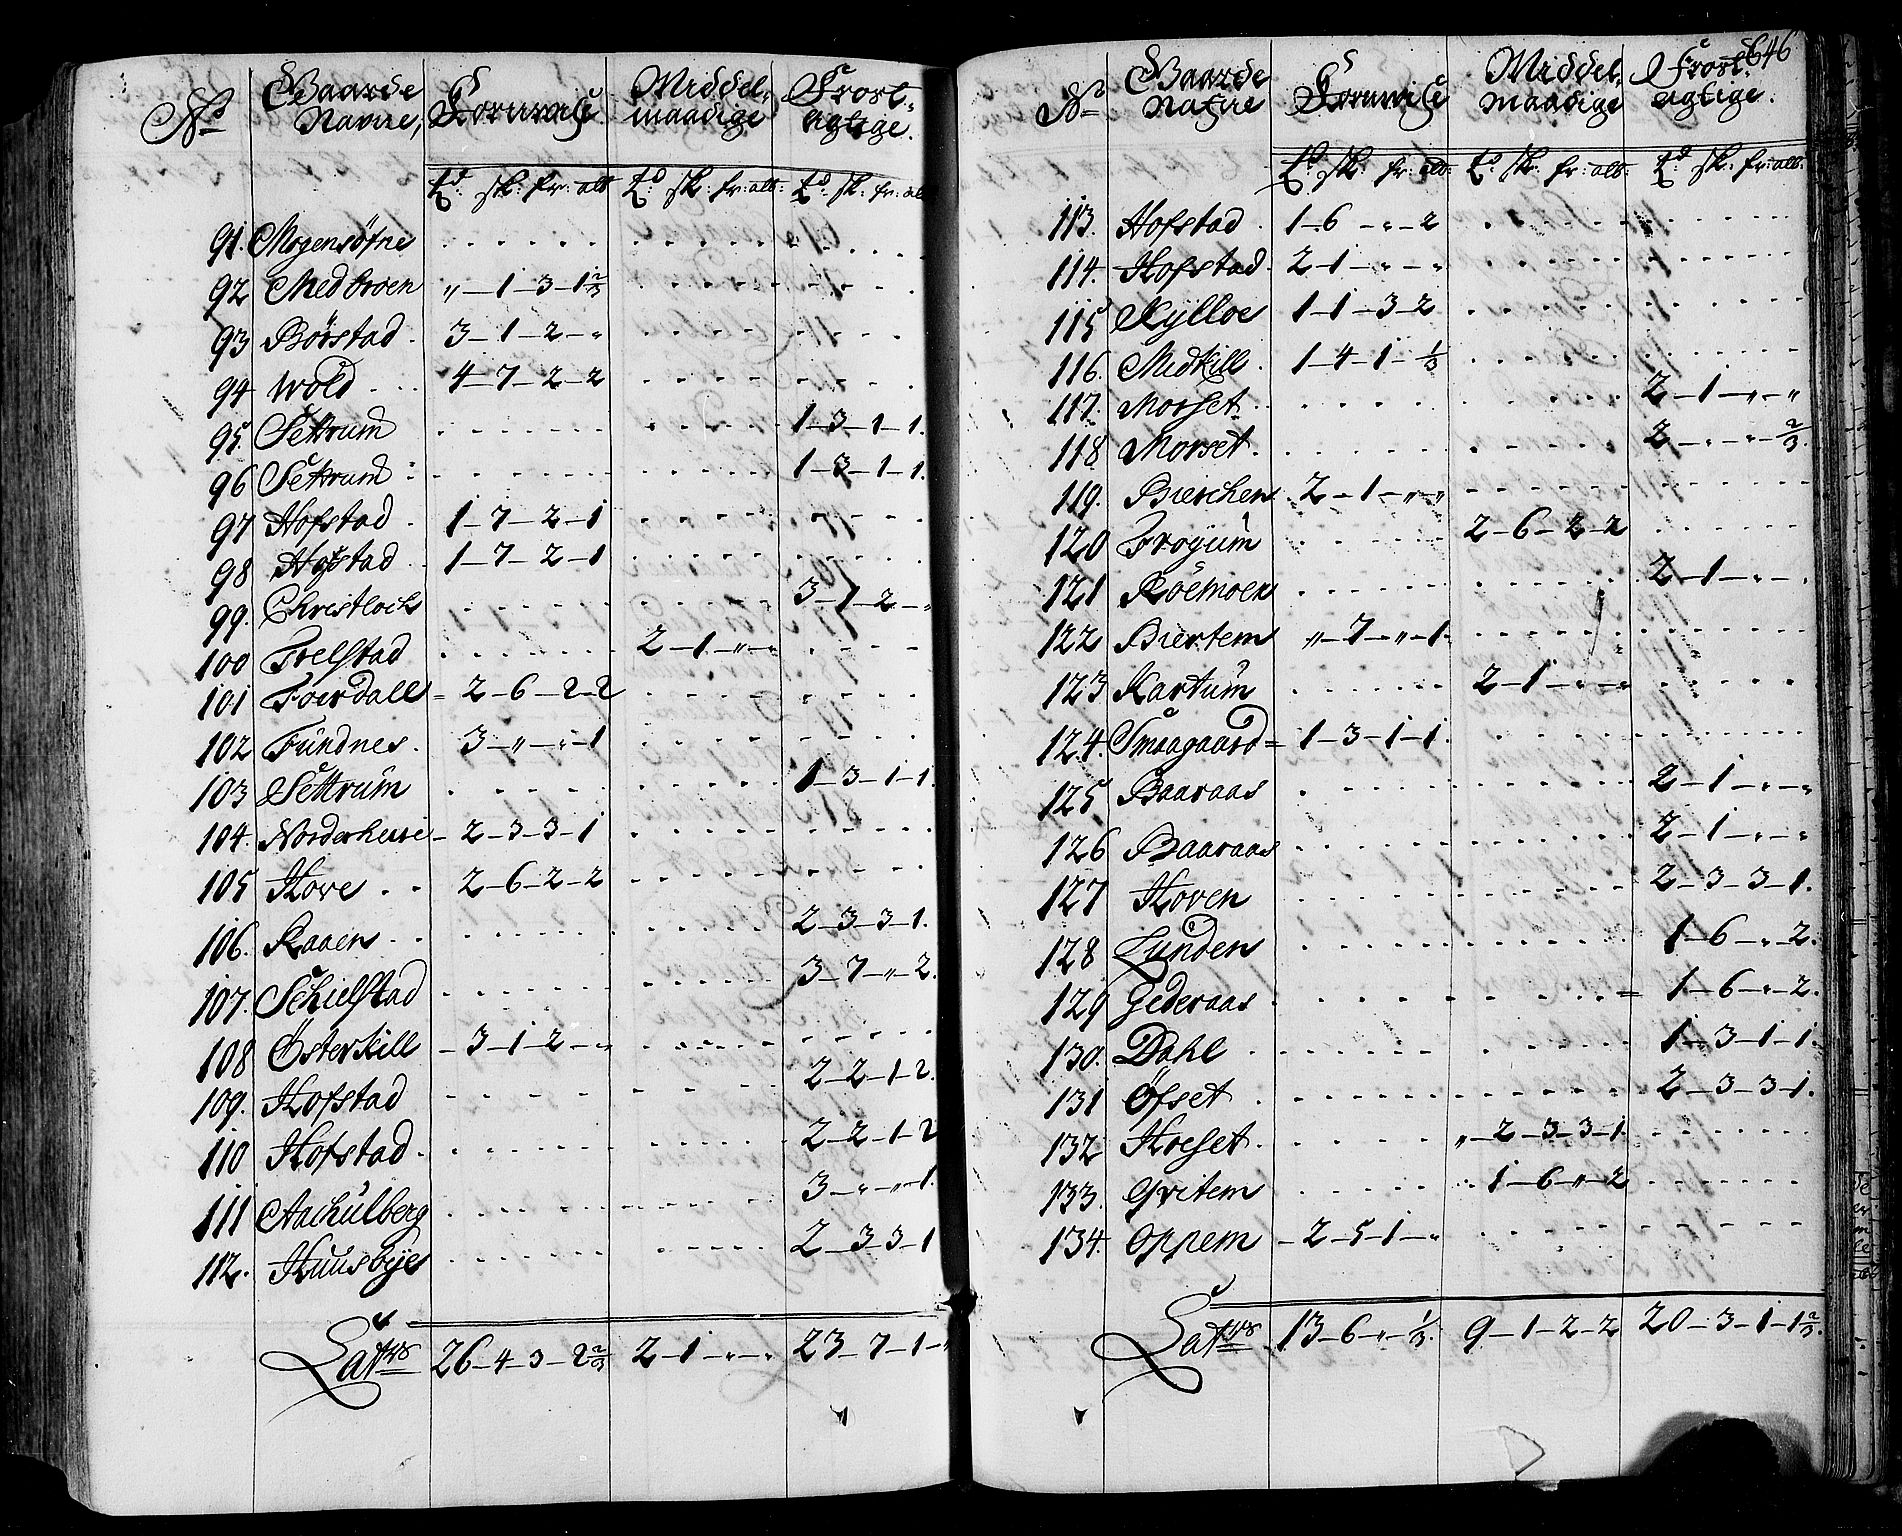 No Gaarde Navne, Kornvisse Middelmaadige Frostagtige.
td: sk: fr: alb td: sk: fr: alb: td: sk: fr: alb
91. Mogensöfne
92 Medbroen „ - 1 - 3 - 1 2/3
93 Börstad 3 - 1 - 2 - „
94 Wold 4 - 7 - 2 - 2
95 Settrum 1 - 3 - 1 - 1.
96 Settrum 1 - 3 - 1 - 1.
97 Hofstad 1 - 7 - 2 - 1
98 Hofstad 1 - 7 - 2 - 1
99. Christloch 3 - 1 - 2 - „
100 Frelstad 2 - 1 - „ - „
101 Foerdall 2 - 6 - 2 - 2
102 Fundnes. 3 - „ - „ - 1
103 Settrum 1 - 3 - 1 - 1
104. Norderhuus 2 - 3 - 3 - 1
105 Hove 2 - 6 - 2 - 2
106. Raaen 2 - 3 - 3 - 1.
107. Schielstad 3 - 7 - „ - 2.
108 Österkill 3 - 1 - 2 - „
109. Hofstad 2 - 2 - 1 - 2.
110 Hofstad 2 - 2 - 1 - 2
111 Aachulberg 3 - „ - „ - 1
112. Huusbye 2 - 3 - 3 - 1
Latus 26 - 4 - 3 - 2 2/3 2 - 1 - „ - „ 23 - 7 - 1 - „
646
No Gaarde Nafne Kornvisse Middelmaadige Frostagtige.
td: sk: fr: alb: td: sk: fr: alb: td: sk: fr: alb:
113. Hofstad 1 - 6 - „ - 2
114. Hofstad 2 - 1 - „ - „
115 Kylloe 1 - 1 - 3 - 2
116. Midtkill 1 - 4 - 1 - 1/3
117. Morset 2 - 1 - „ - „
118 Morset 2 - „ - „ - 2/3.
119. Bierchen 2 - 1 - „ - „
120 Froyum 2 - 6 - 2 - 2
121 Röemoen 2 - 1 - „ - „
122 Biertem „ - 7 - „ - 1.
123 Kartum 2 - 1 - „ - „
124. Smaagaard 1 - 3 - 1 - 1.
125 Baaraas 2 - 1 - „ - „
126 Baaraas 2 - 1 - „ - „
127 Hoven 2 - 3 - 3 - 1.
128 Lunden 1 - 6 - „ - 2.
129 Gederaas 1 - 6 - „ - 2.
130. Dahl 1 - 3 - 1 - 1.
131 Öfset 2 - 3 - 3 - 1.
132 Hoeset „ 2 - 3 - 3 - 1
133. Gvitem 1 - 6 - „ - 2
134. Oppem 2 - 5 - 1 - „
Latus 13 - 6 - „ - 1/3. 9 - 1 - 2 - 2 20 - 3 - 1 - 1 2/3.